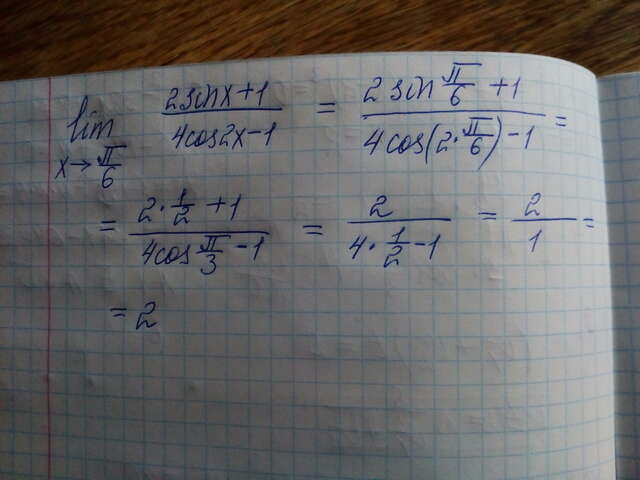 lim x→π/6 (2sinx+1)/(4cos2x-1) = (2sin π/6 +1)/(4cos(2·π/6)-1) =
= (2·1/2 +1)/(4cos π/3 -1) = 2/(4·1/2-1) = 2/1 =
= 2